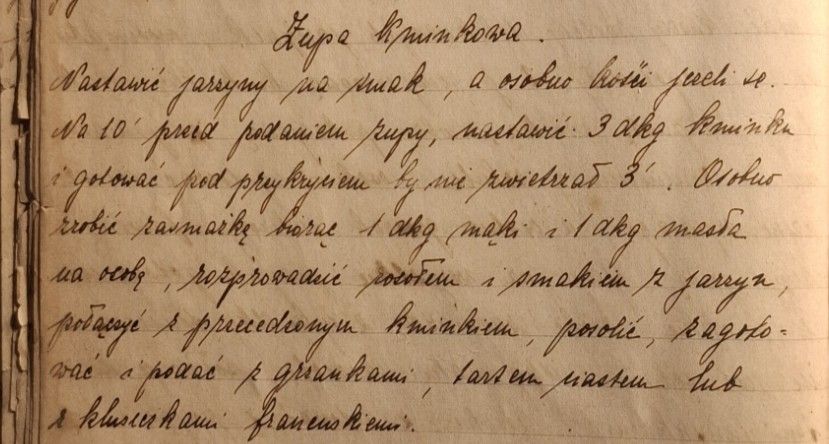 Zupa kminkowa.
Nastawić jarzyny na smak, a osobno kości jeżeli są.
Na 10' przed podaniem zupy, nastawić 3 dkg kminku
i gotować pod przykryciem by nie zwietrzał 3'. Osobno
zrobić zasmażkę biorąc 1 dkg mąki i 1 dkg masła
na osobę, rozprowadzić rosołem i smakiem z jarzyn,
połączyć z przecedzonym kminkiem, posolić, zagoto-
wać i podać z grzankami, tartem ciastem lub
z kluseczkami francuskiemi.